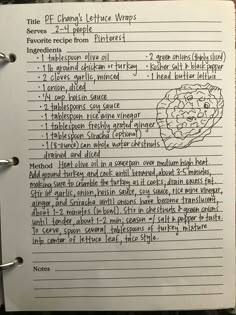 Title PF Chang's Lettuce Wraps
Serves 2-4 people
Favorite recipe from Pinterest
Ingredients
• 1 tablespoon olive oil • 2 green onions (thinly sliced)
• 1 lb ground chicken or turkey • Kosher salt & black pepper
• 2 cloves garlic, minced • 1 head butter lettuce
• 1 onion, diced
• 1/4 cup hoisin sauce
• 2 tablespoons soy sauce
• 1 tablespoon rice wine vinegar
• 1 tablespoon freshly grated ginger
• 1 tablespoon Sriracha (optional)
• 1 (8-ounce) can whole water chestnuts
drained and diced
Method Heat olive oil in a saucepan over medium high heat.
Add ground turkey and cook until browned, about 3-5 minutes,
making sure to crumble the turkey as it cooks; drain excess fat.
Stir in garlic, onion, hoisin sauce, soy sauce, rice wine vinegar,
ginger, and Sriracha until onions have become translucent,
about 1-2 minutes (in bowl). Stir in chestnuts & green onions
until tender, about 1-2 min; season w/ salt & pepper to taste.
To serve, spoon several tablespoons of turkey mixture
into center of lettuce leaf, taco style.
Notes